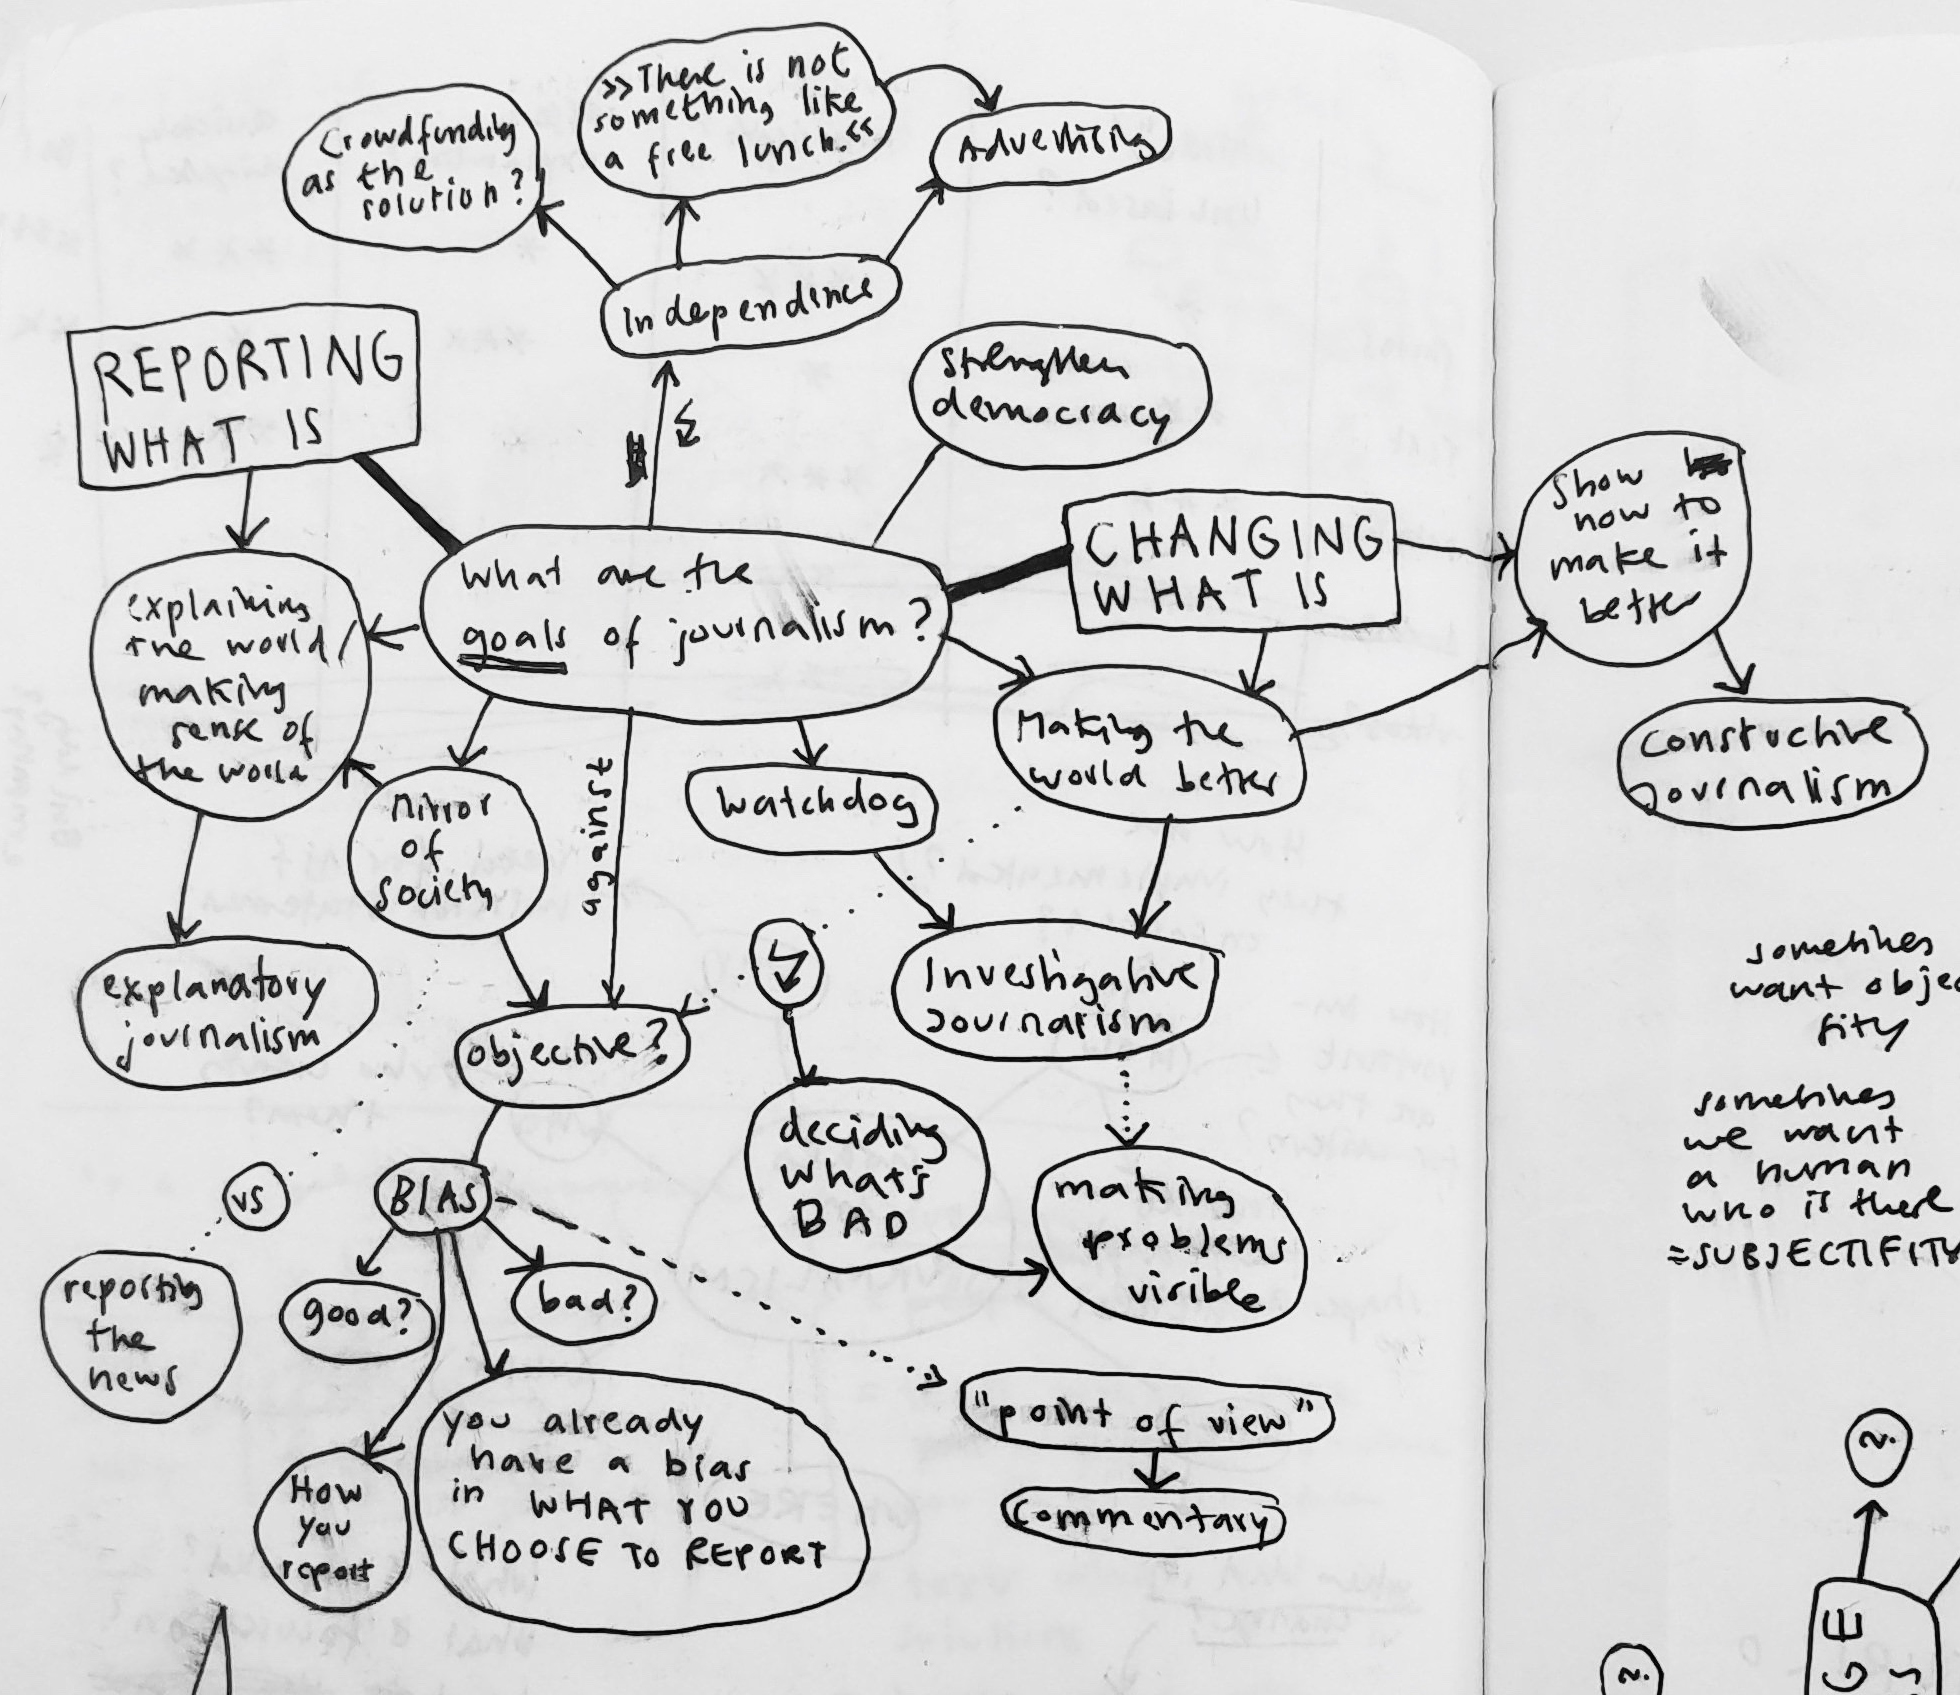 Crowdfunding
as the
solution?
»There is not
something like
a free lunch.«
Advertising
Independence
REPORTING
WHAT IS
Strengthen
democracy
CHANGING
WHAT IS
Show
how to
make it
better
What are the
goals of journalism?
explaining
the world/
making
sense of
the world
Making the
world better
constructive
journalism
mirror
of
society
against
Watchdog
explanatory
journalism
objective?
Investigative
Journalism
sometimes
want objec
fity
deciding
what's
BAD
making
problems
visible
sometimes
we want
a human
who is there
=SUBJECTIFITY
vs
BIAS
reporting
the
news
good?
bad?
"point of view"
commentary
How
you
report
you already
have a bias
in WHAT YOU
CHOOSE TO REPORT
2.
2.
GE